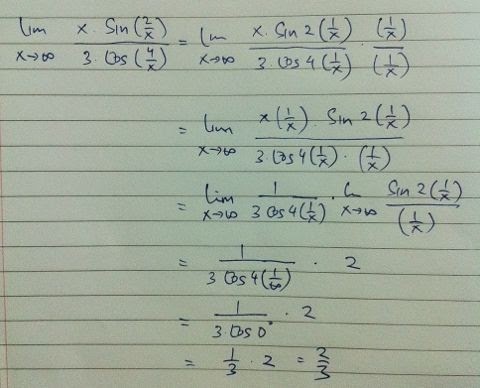 lim x→∞ x. Sin(2/x) / 3. Cos(4/x) = lim x→∞ x. Sin 2(1/x) / 3. Cos 4(1/x) . (1/x) / (1/x)
= lim x→∞ x(1/x). Sin 2(1/x) / 3. Cos 4(1/x) . (1/x)
= lim x→∞ 1 / 3 Cos 4(1/x) . lim x→∞ Sin 2(1/x) / (1/x)
= 1 / 3 Cos 4(1/∞) . 2
= 1 / 3. Cos 0° . 2
= 1/3 . 2 = 2/3